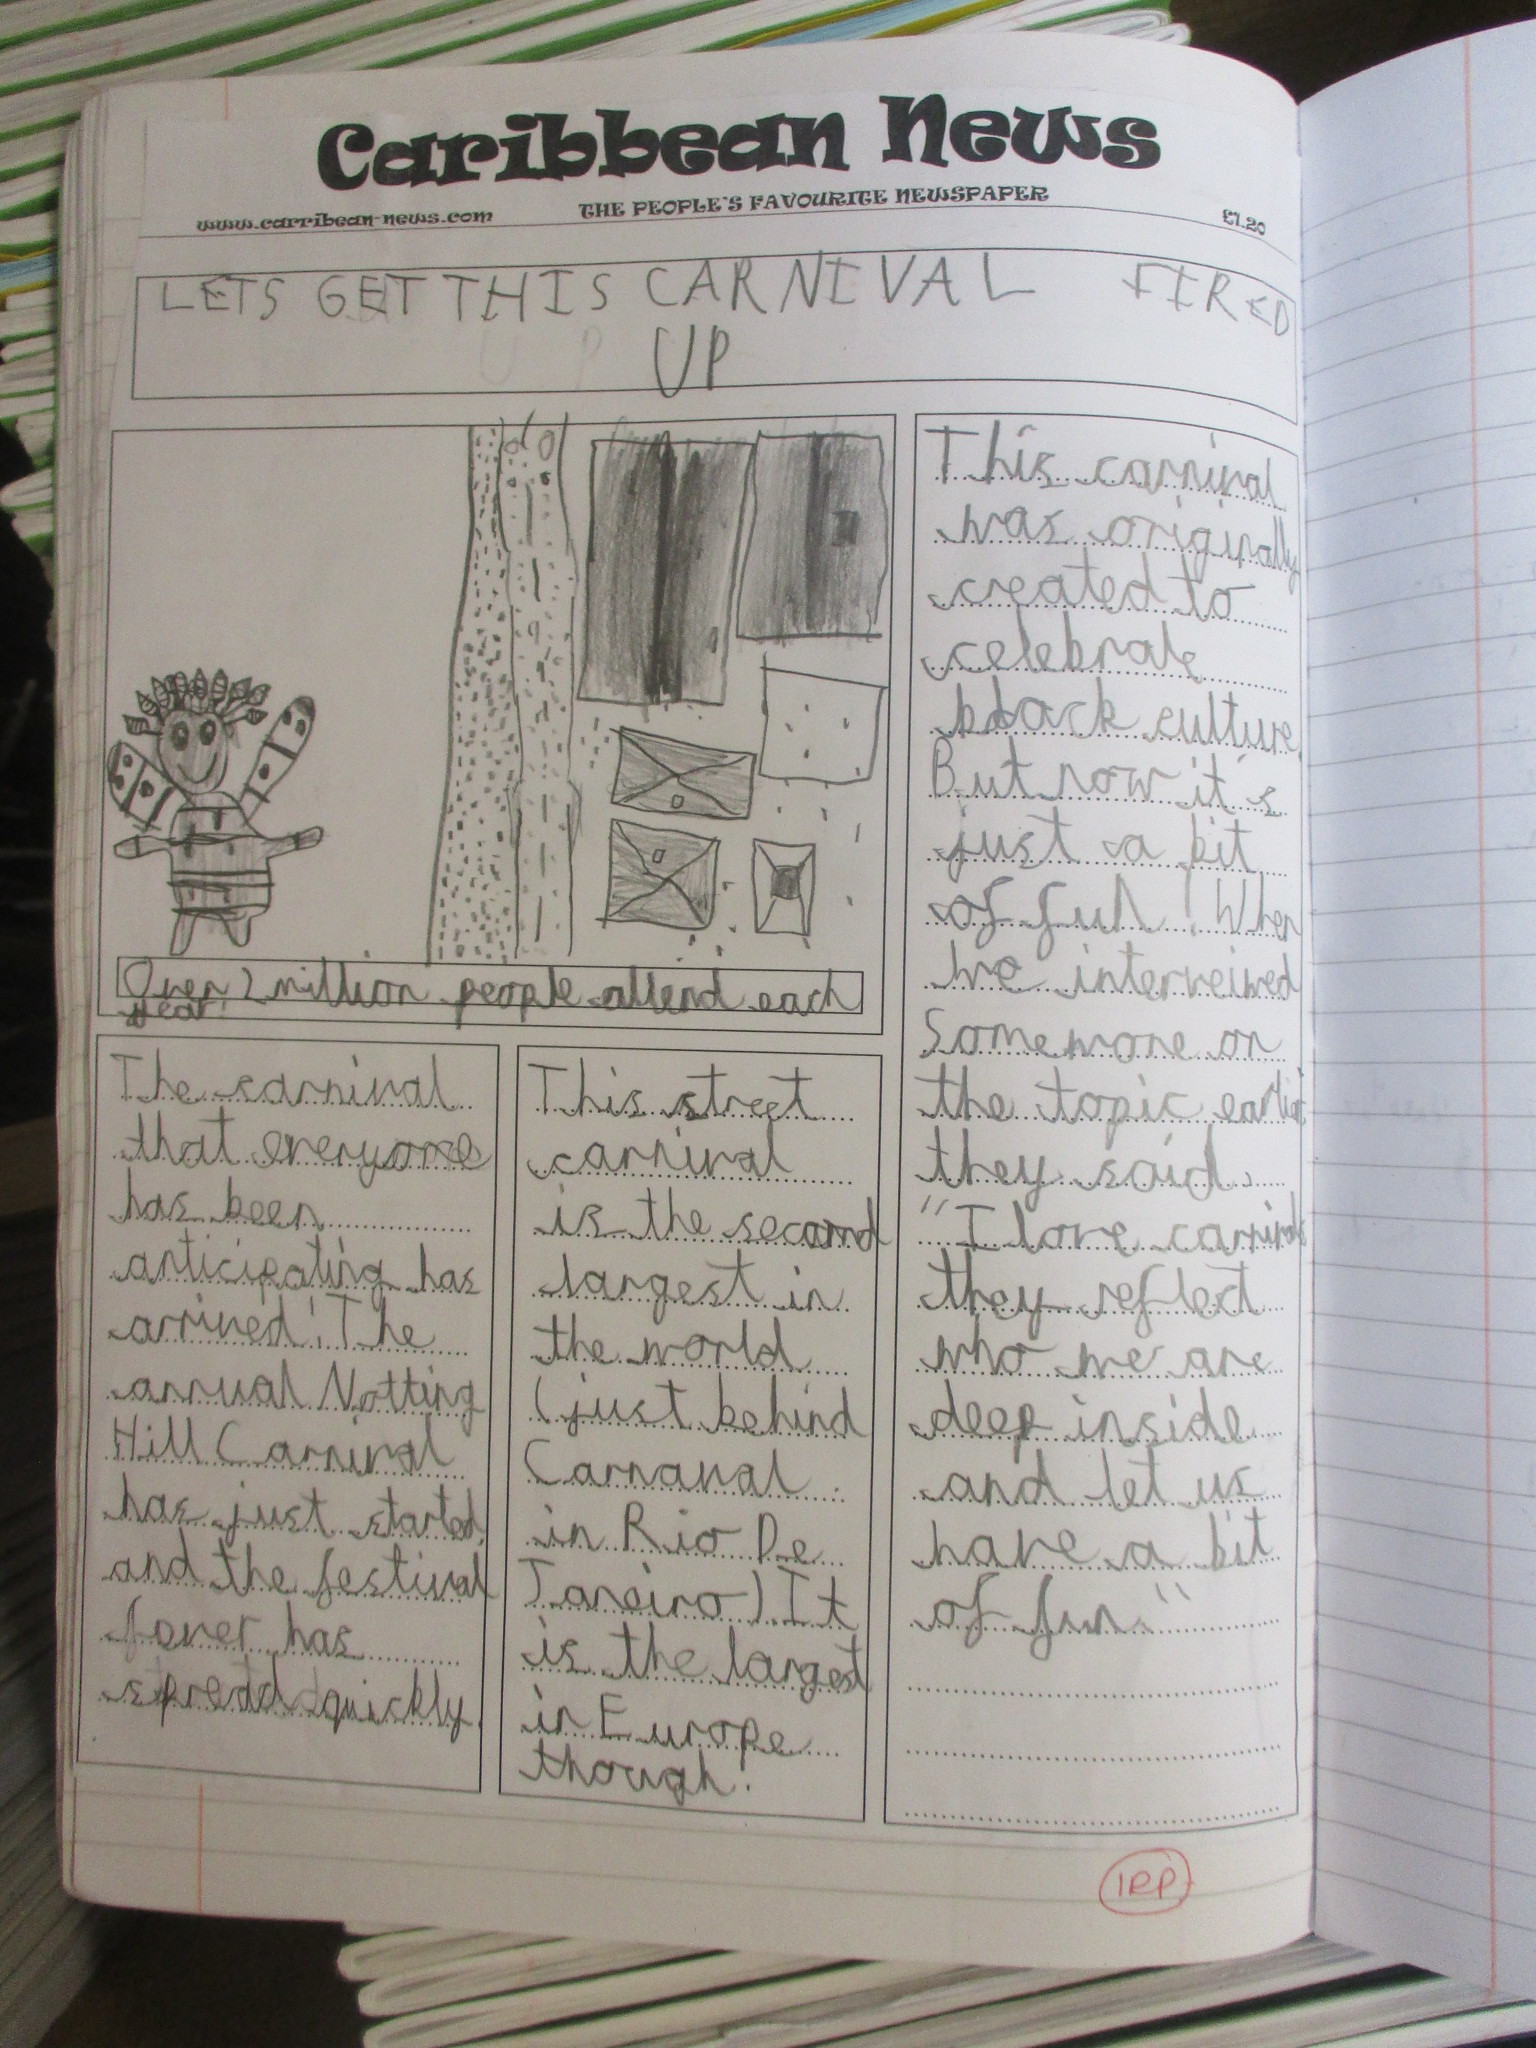 Caribbean News
www.carribean-news.com THE PEOPLE'S FAVOURITE NEWSPAPER £1.20
LETS GET THIS CARNIVAL FIRED
UP
Over 2 million people attend each
year.
The carnival
that everyone
has been
anticipating has
arrived! The
annual Notting
Hill Carnival
has just started
and the festival
fever has
spread quickly.
This street
carnival
is the second
largest in
the world
(just behind
Carnaval
in Rio De
Janeiro) It
is the largest
in Europe
though.
This carnival
was originally
created to
celebrate
black culture
But now it's
just a bit
of fun! When
we interveiwed
Somewone on
the topic earlier
they said,
"I love carnivals
they reflect
who we are
deep inside
and let us
have a bit
of fun."
1RP